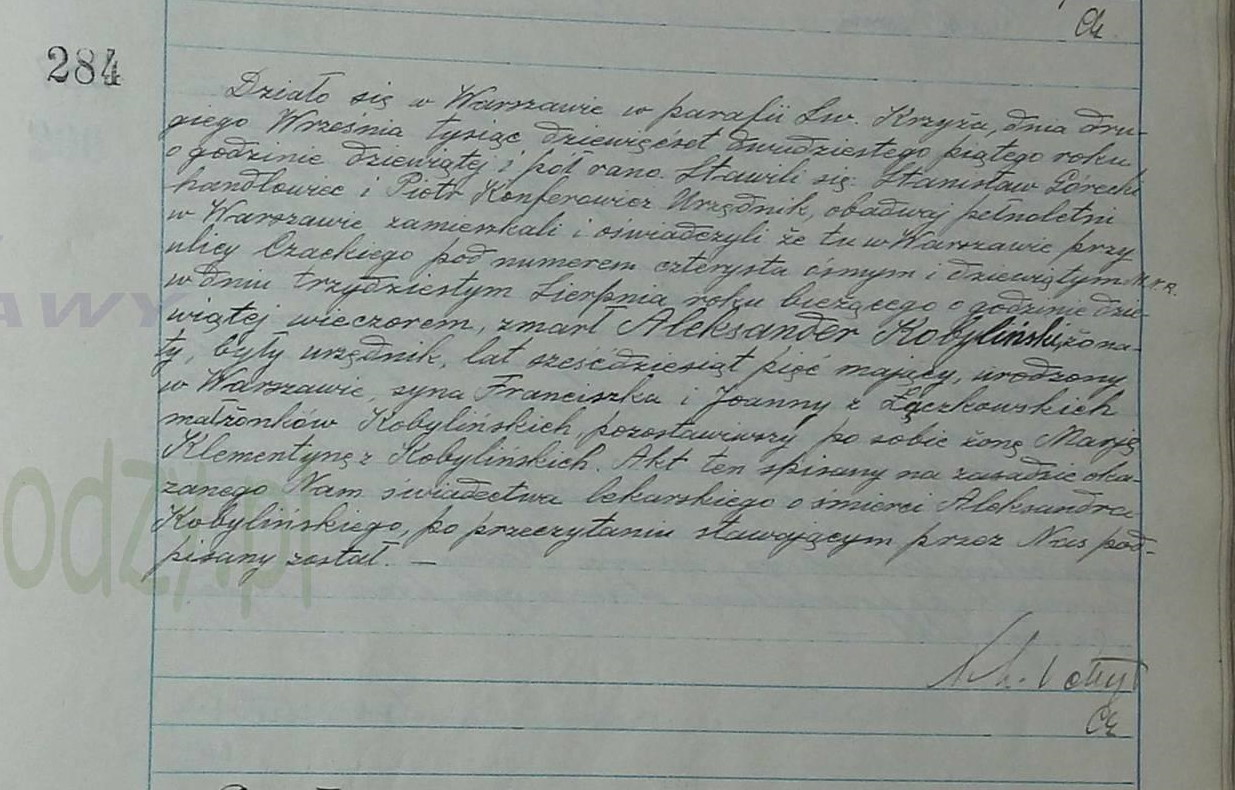 Ck
284
Działo się w Warszawie w parafii Św. Krzyża, dnia dru-
giego Września tysiąc dziewięćset dwudziestego piątego roku
o godzinie dziewiątej i pół rano. Stawili się: Stanisław Górecki
handlowiec i Piotr Konferowicz Urzędnik, obadwaj pełnoletni
w Warszawie zamieszkali i oświadczyli że tu w Warszawie przy
ulicy Czackiego pod numerem czterysta ósmym i dziewiątym
w dniu trzydziestym Sierpnia roku bieżącego o godzinie dzie-
wiątej wieczorem, zmarł Aleksander Kobyliński, żona-
ty, były urzędnik, lat sześćdziesiąt pięć mający, urodzony
w Warszawie, syna Franciszka i Joanny z Łączkowskich
małżonków Kobylińskich, pozostawiwszy po sobie żonę Marję
Klementynę z Kobylinskich. Akt ten spisany na zasadzie oka-
zanego Nam świadectwa lekarskiego o śmierci Aleksandra
Kobylińskiego, po przeczytaniu stawającym przez Nas pod-
pisany został. —
Ck
AWY
odzi.pl